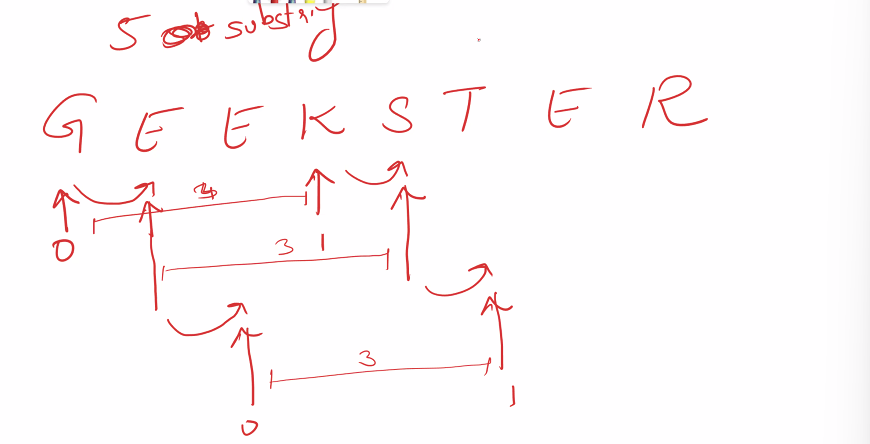 5 substring
G E E K S T E R
0 3 1
3
3
0 1